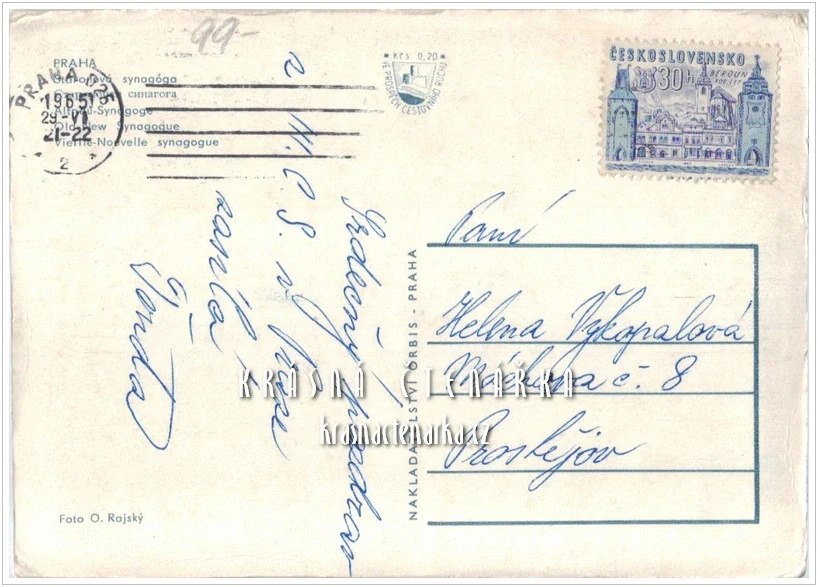 99-
PRAHA
Staronová synagóga
Староновая синагога
Altneu-Synagoge
Old-New Synagogue
Vieille-Nouvelle synagogue
PRAHA 025
1965
29.VI
21-22
2
Kčs 0,20
VE PROSPĚCH CESTOVNÍHO RUCHU
ČESKOSLOVENSKO
30h
BEROUN
700 LET
Srdečný pozdrav
z III. C. S. v Praze
zasílá
Jonda
NAKLADATELSTVÍ ORBIS - PRAHA
Paní
Helena Vykopalová
Máchova č. 8
Prostějov
KRÁSNÁ ČTENÁŘKA
krasnactenarka.cz
Foto O. Rajský